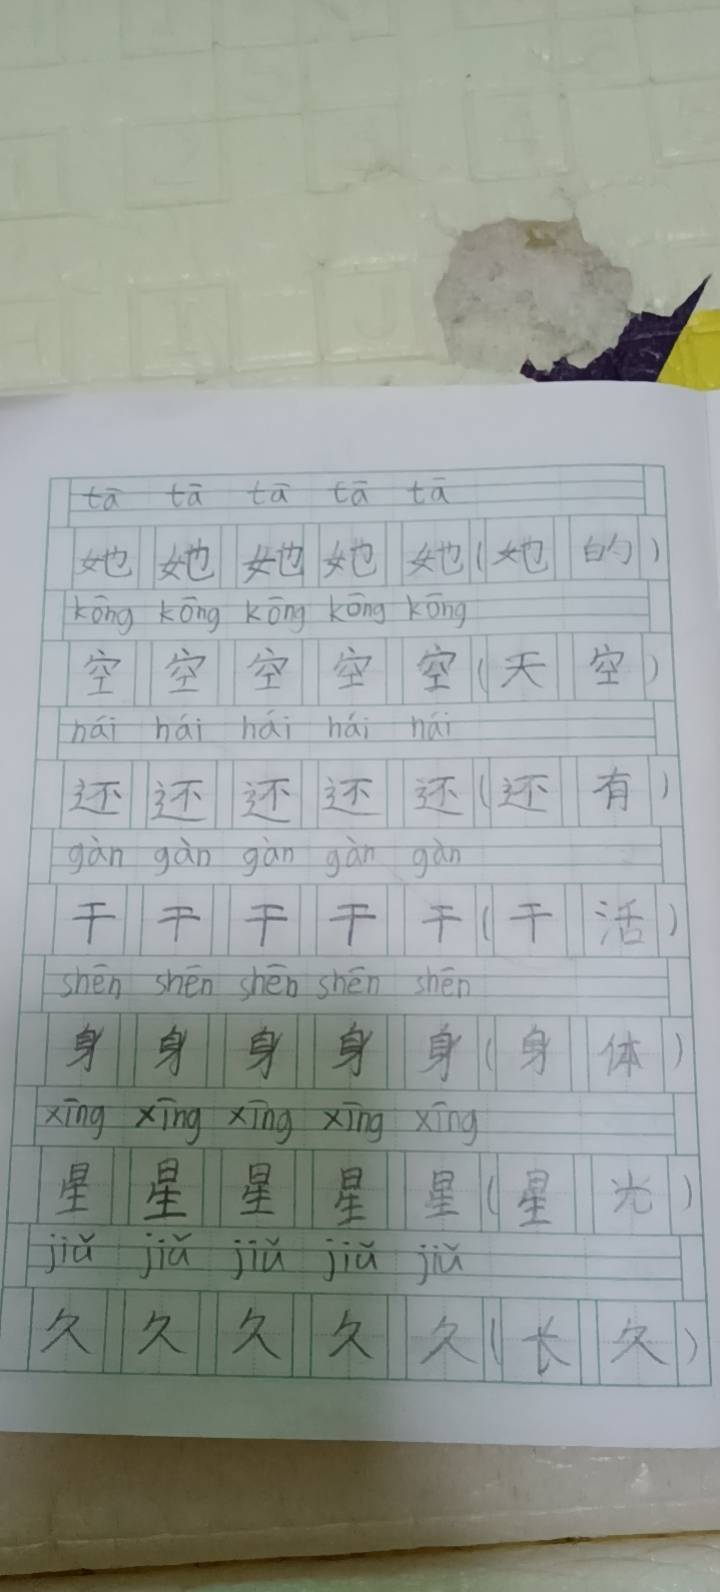 tā tā tā tā tā
她 她 她 她 她 ( 她 的 )
kōng kōng kōng kōng kōng
空 空 空 空 空 ( 天 空 )
hái hái hái hái hái
还 还 还 还 还 ( 还 有 )
gàn gàn gàn gàn gàn
干 干 干 干 干 ( 干 活 )
shēn shēn shēn shēn shēn
身 身 身 身 身 ( 身 体 )
xīng xīng xīng xīng xīng
星 星 星 星 星 ( 星 光 )
jiǔ jiǔ jiǔ jiǔ jiǔ
久 久 久 久 久 ( 长 久 )